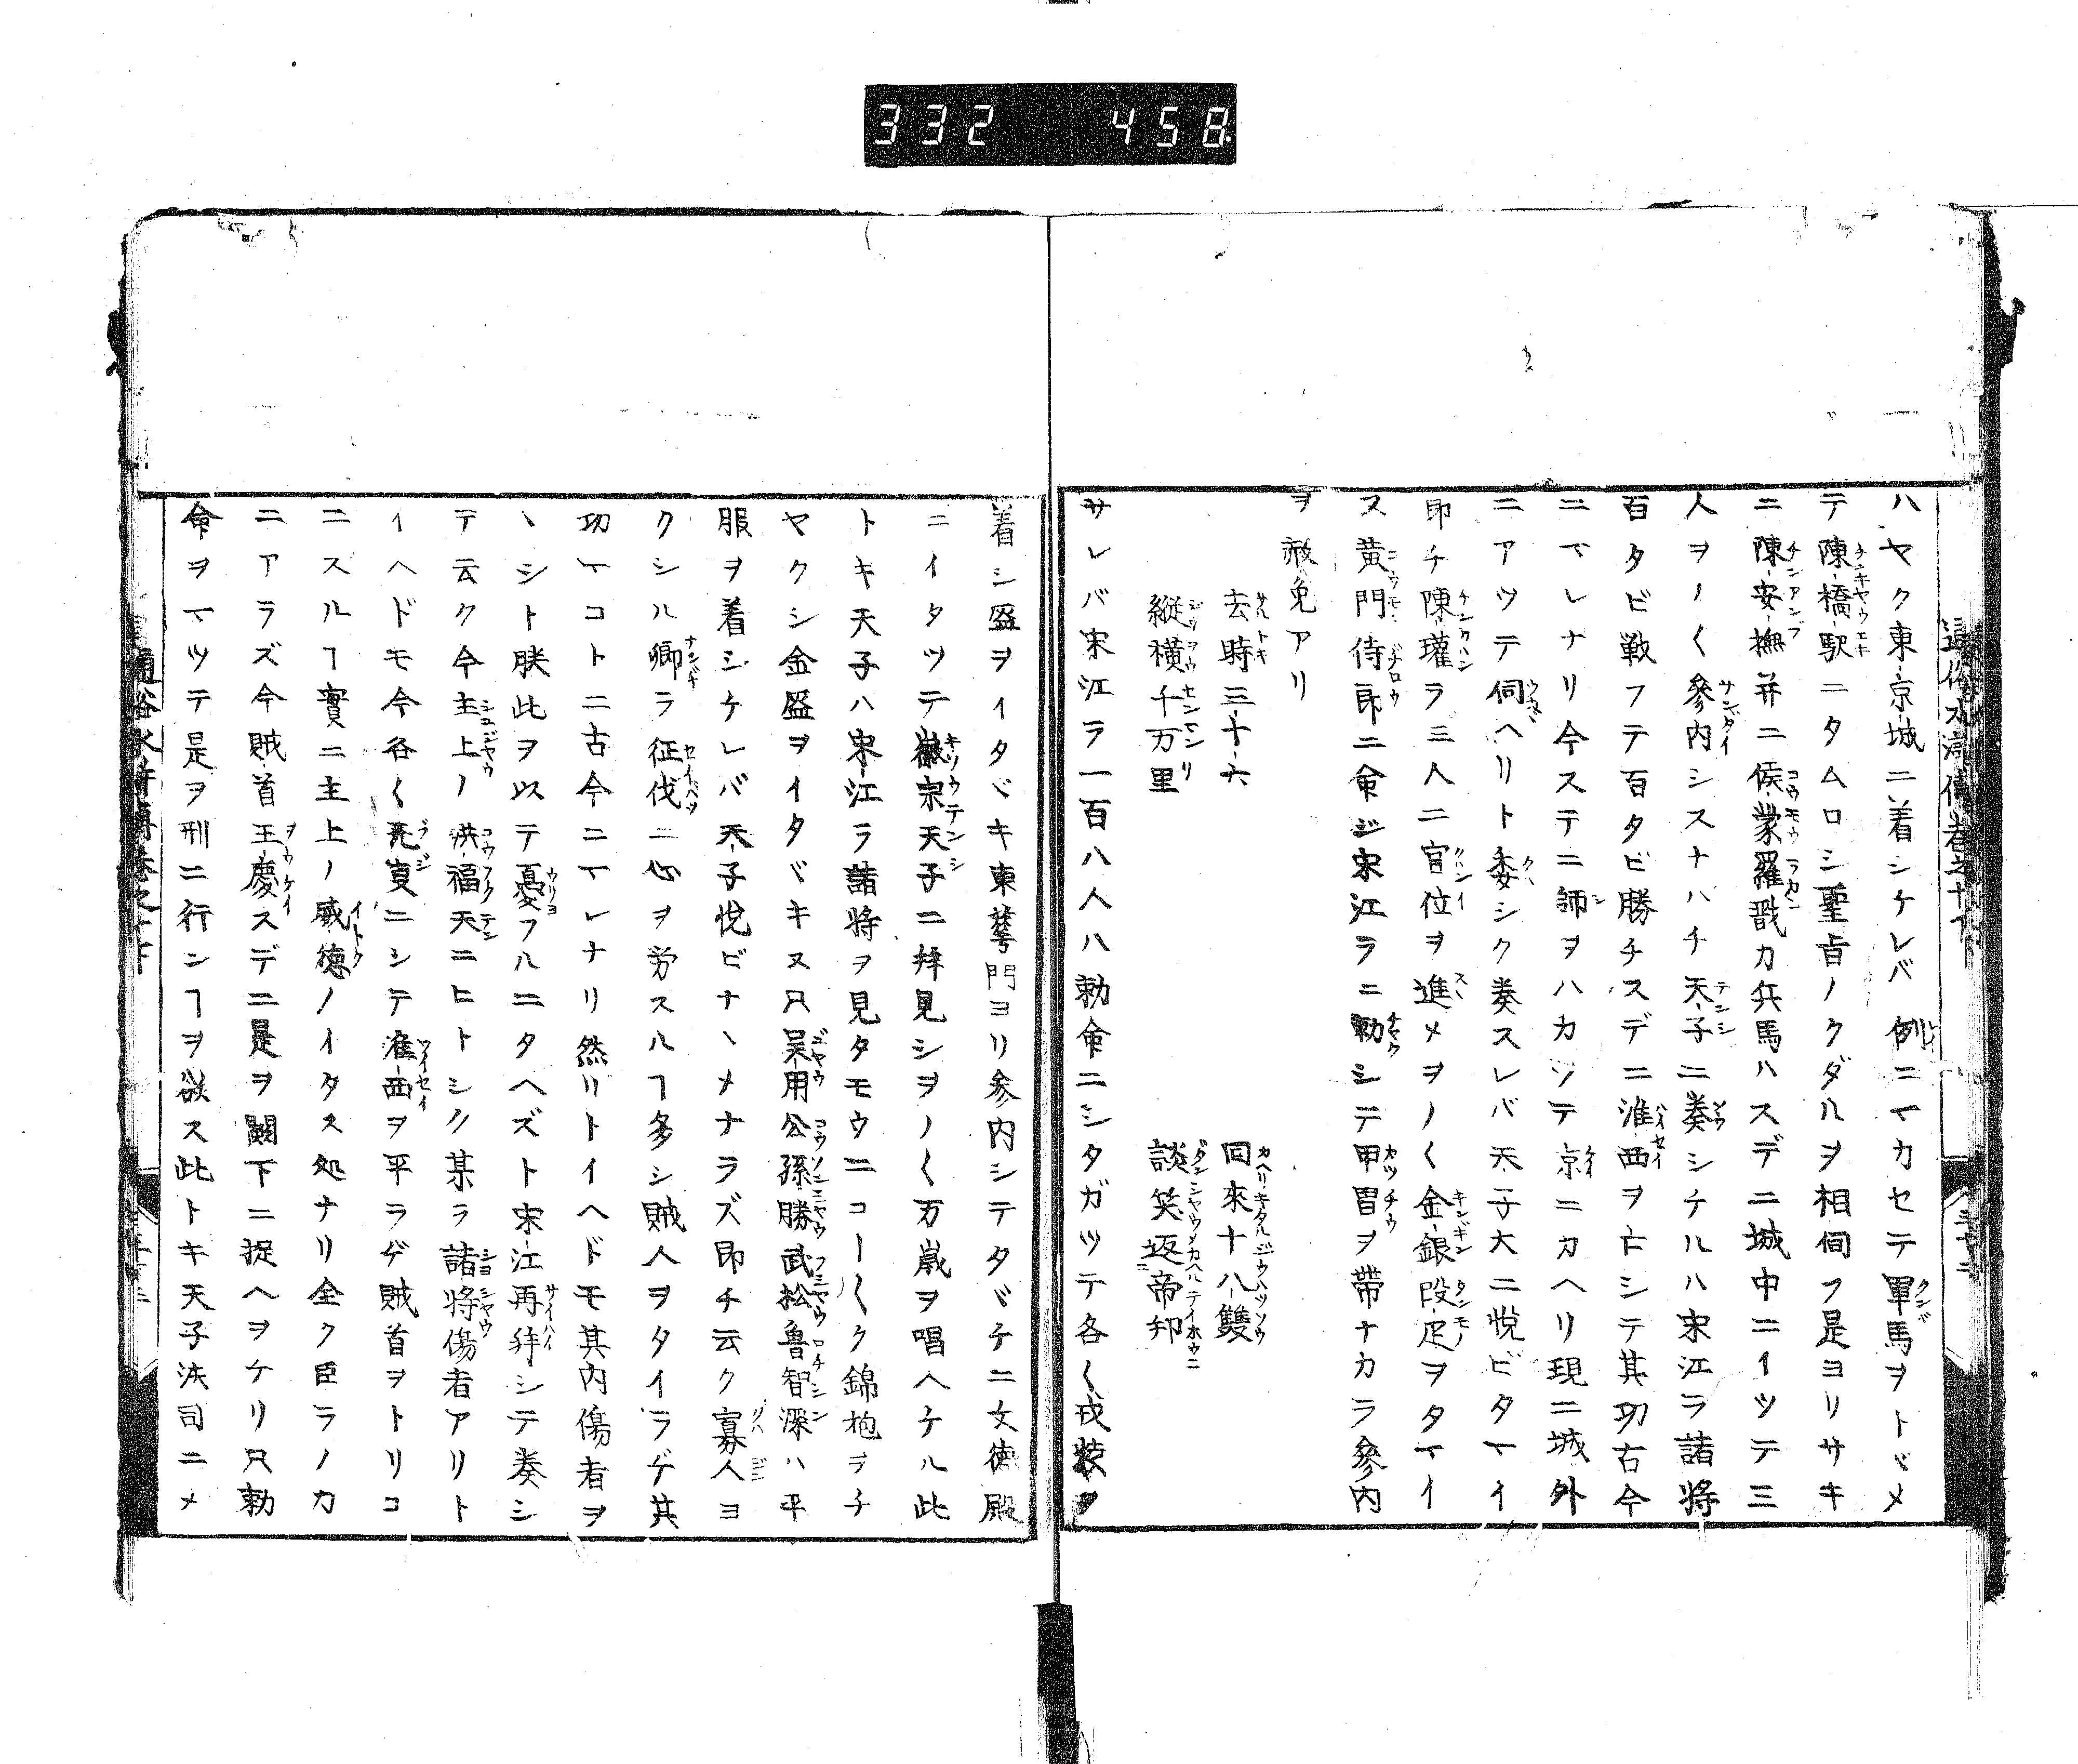 332 458
ハヤク東京城ニ着シケレバ例ニマカセテ軍馬ヲトヾメ
テ陳橋駅ニタムロシ聖旨ノクダルヲ相伺フ是ヨリサキ
ニ陳安撫并ニ侯蒙羅戩カ兵馬ハスデニ城中ニイツテ三
人ヲノ〱參内シスナハチ天子ニ奏シケルハ宋江ラ諸将
百タビ戦フテ百タビ勝チスデニ淮西ヲ亡シテ其功古今
ニマレナリ今ステニ師ヲハカツテ京ニカヘリ現ニ城外
ニアツテ伺ヘリト委シク奏スレバ天子大ニ悦ビタマイ
即チ陳瓘ラ三人ニ官位ヲ進メヲノ〱金銀段疋ヲタマイ
ヌ黄門侍郎ニ命ジ宋江ラニ勅シテ甲冑ヲ帯ナカラ參内
ヲ赦免アリ
去時三十六 回來十八雙
縦横千万里 談笑返帝邦
サレバ宋江ラ一百八人ハ勅命ニシタガツテ各〱戎裝ヲ
着シ盔ヲイタヾキ東華門ヨリ参内シテタヾチニ文徳殿
ニイタツテ徽宗天子ニ拜見シヲノ〱万歳ヲ唱ヘケル此
トキ天子ハ宋江ラ諸将ヲ見タモウニコト〱ク錦袍ヲ
ヤクシ金盔ヲイタヾキヌ只呉用公孫勝武松魯智深ハ平
服ヲ着シケレバ天子悦ビナヽメナラズ即チ云ク寡人ヨ
クシル卿ラ征伐ニ心ヲ労スルヿ多シ賊人ヲタイラゲ其
功マコトニ古今ニマレナリ然リトイヘドモ其内傷者ヲ
ヽシト朕此ヲ以テ憂フルニタヘズト宋江再拜シテ奏シ
テ云ク今主上ノ洪福天ニヒトシク某ラ諸将傷者アリト
イヘドモ今各〱无叓ニシテ淮西ヲ平ラゲ賊首ヲトリコ
ニスルヿ實ニ主上ノ威徳ノイタス処ナリ全ク臣ラノカ
ニアラズ今賊首王慶スデニ是ヲ闕下ニ捉ヘヲケリ只勅
命ヲマツテ是ヲ刑ニ行ンヿヲ欲ス此トキ天子法司ニメ